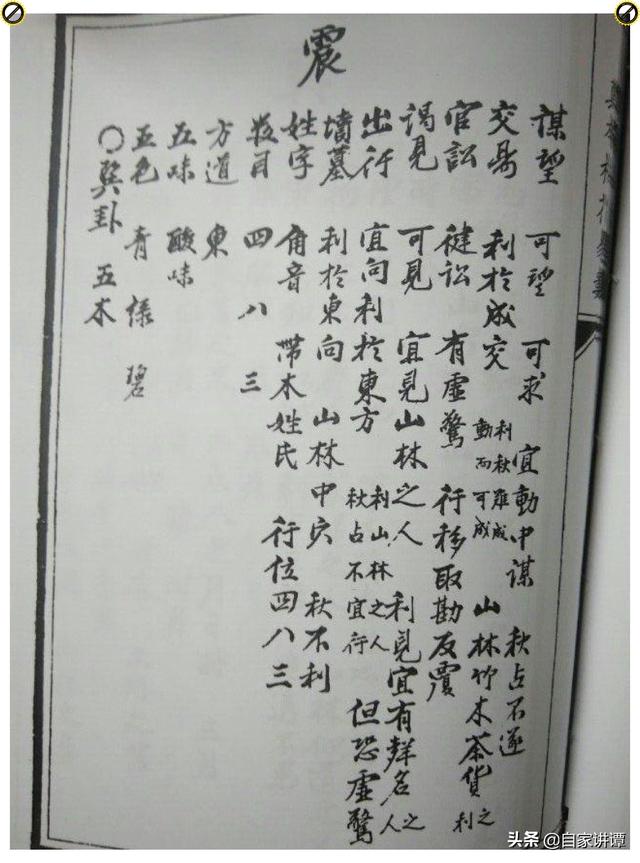 震
謀望 可望 可求 宜動中謀 秋占不遂
交易 利於成交 利秋難成 動而可成 山林竹木茶貨之利
官訟 健訟 有虛驚 行移取勘反覆
謁見 可見 宜見山林之人 利見宜有聲名之人
出行 宜向利於東方 利山林之人 秋占不宜行 但恐虛驚
墳墓 利於東向 山林中穴 秋不利
姓字 角音 帶木姓氏 行位四八三
数目 四 八 三
方道 東
五味 酸味
五色 青 綠 碧
○巽卦 五木
头条 @自家讲谭